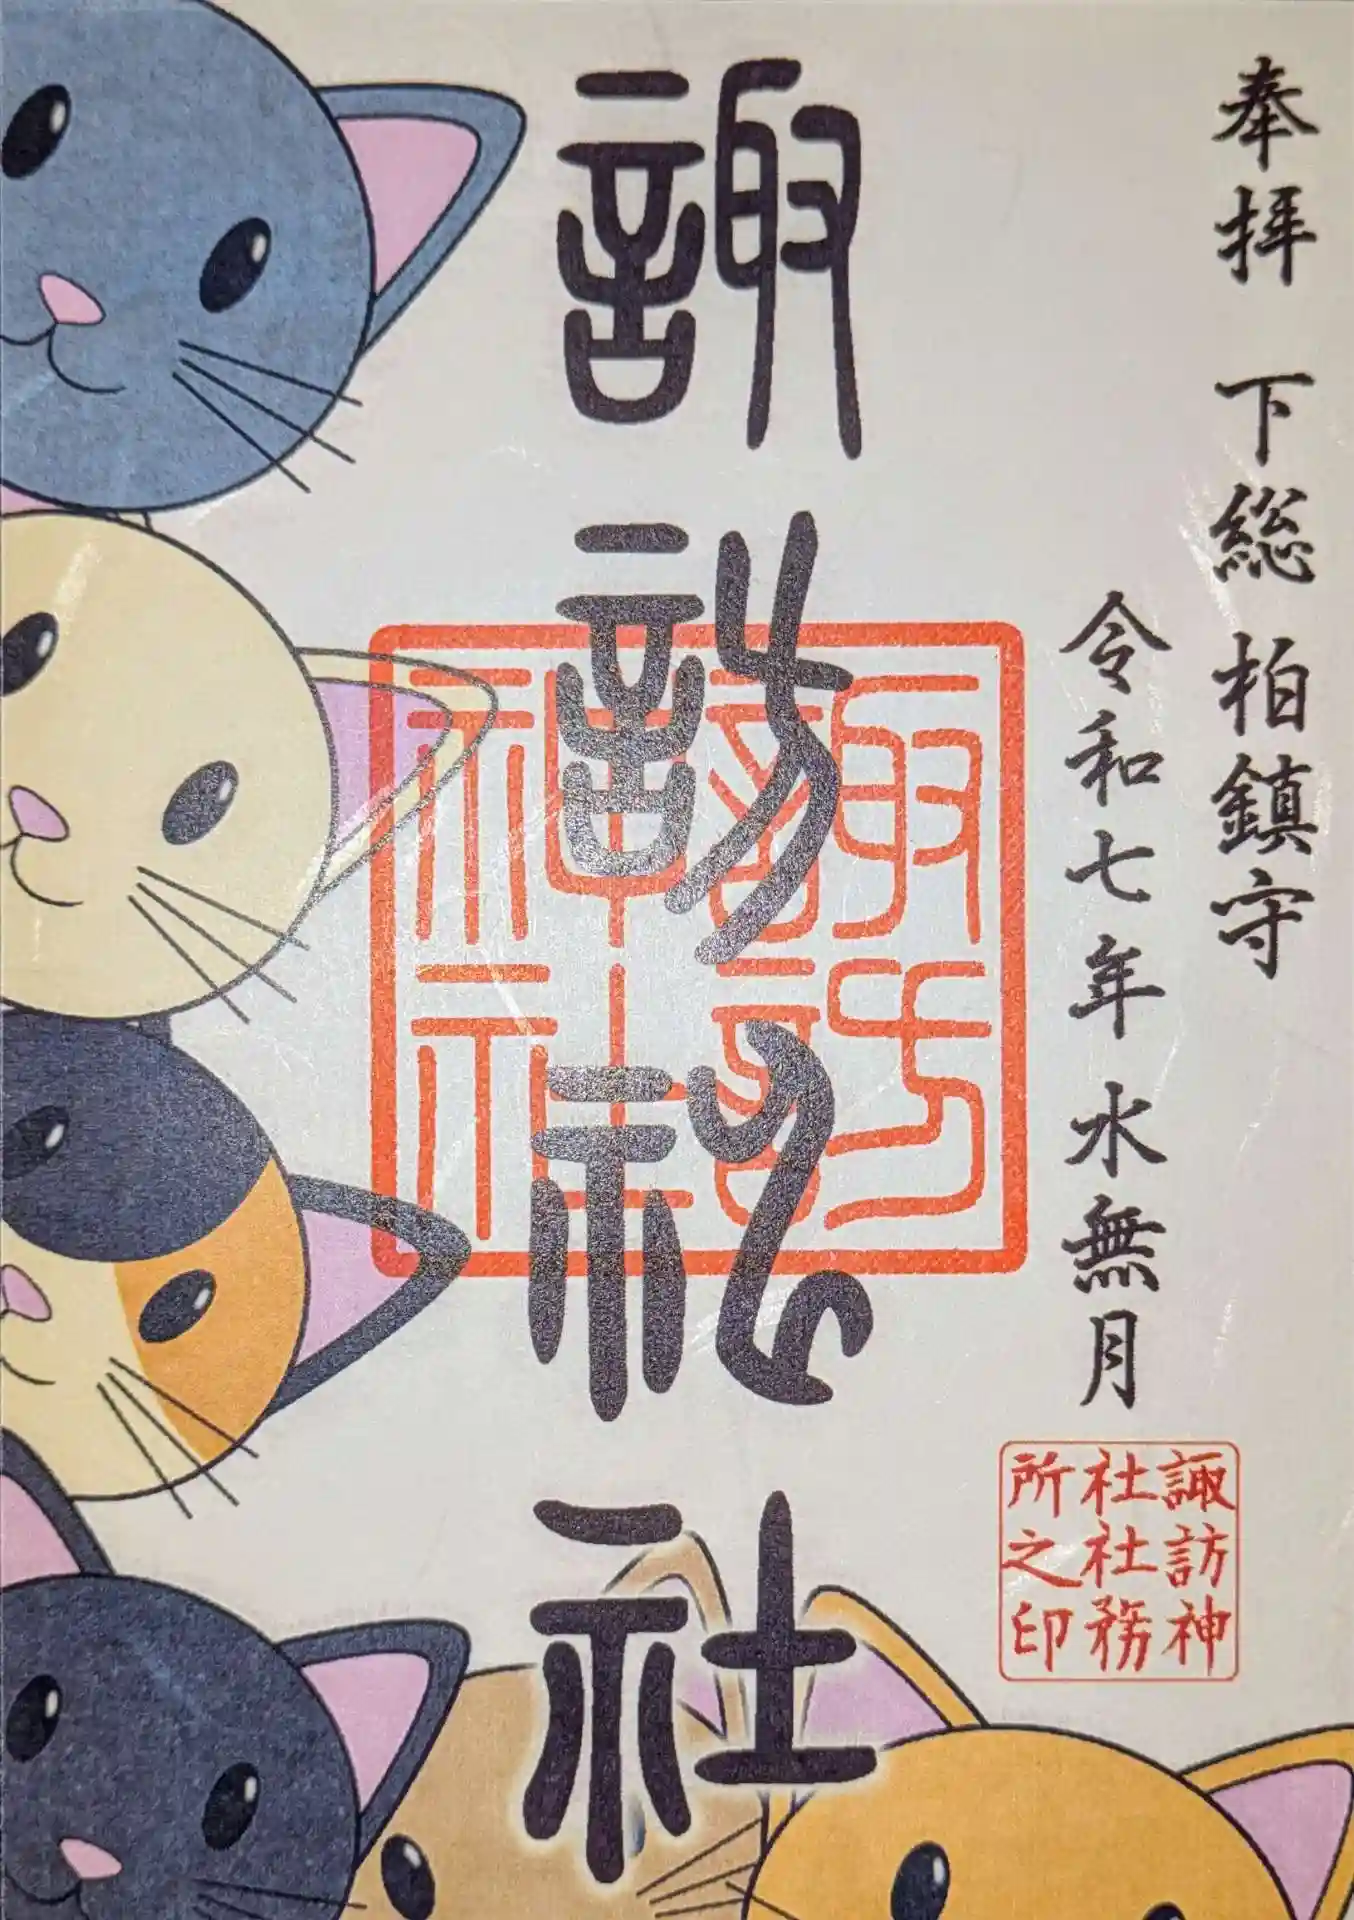 奉拝 下総 柏鎮守
令和七年 水無月
諏訪神社
諏訪神社
諏訪神
社社務
所之印